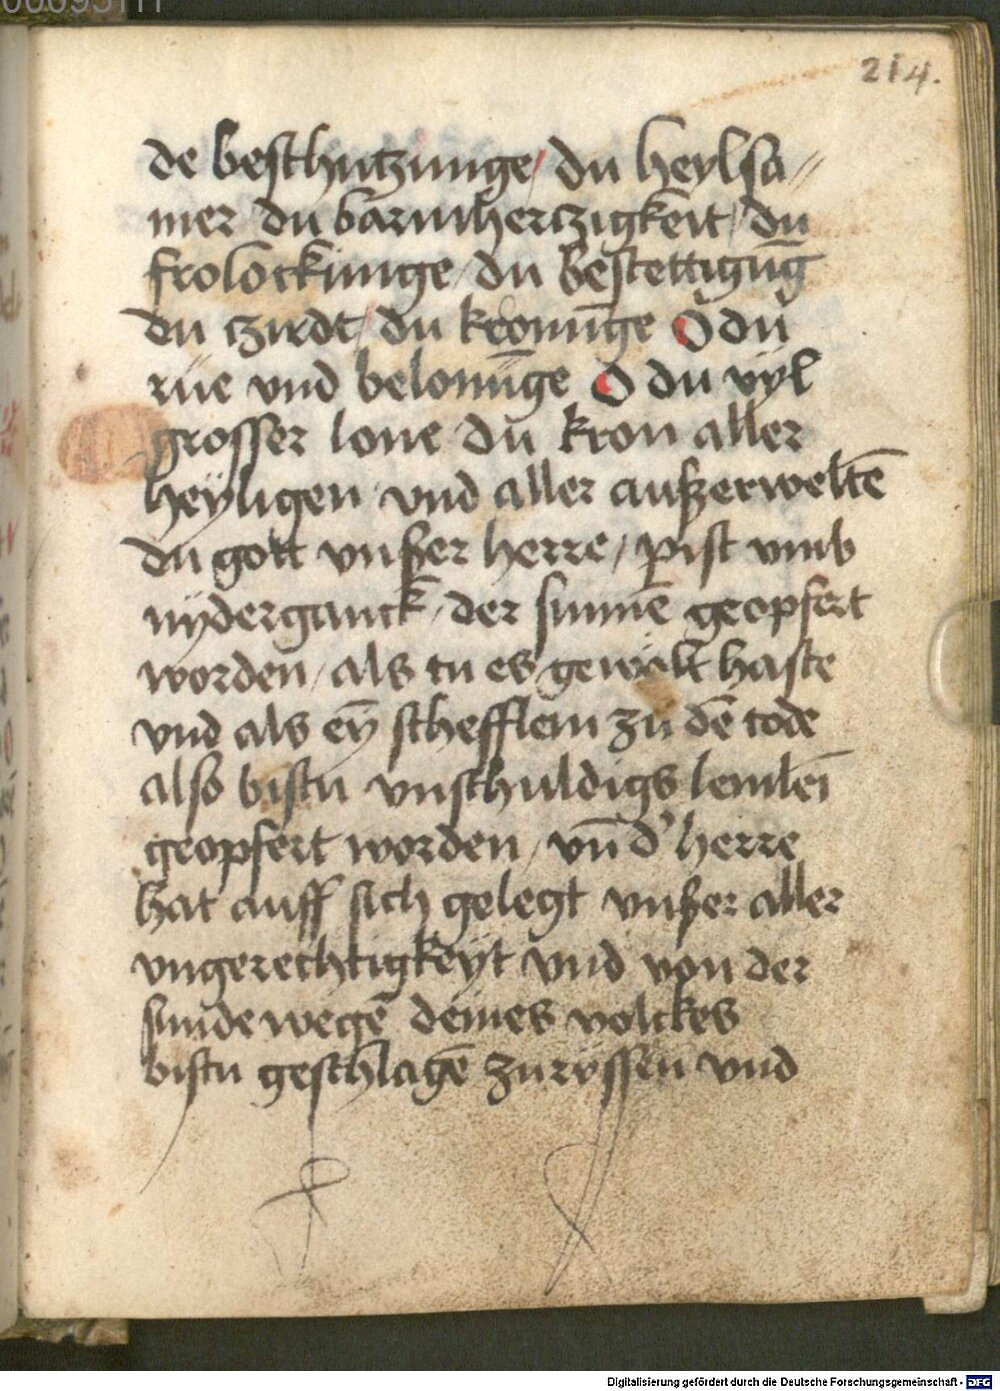 214.
de beschutzunge / du heylsa=
mer du barmhertzigkeit / du
frolockunge / du bestettigūg
du czirdt / du kronūnge O du
rue vnd belonūge O du vyl
grosser lone du kron aller
heyligen vnd aller außerweltē
du gott vnßer herre / pist vmb
nyderganck / der sunnē geopfert
worden / als tu es gewölt haste
vnd als eȳ schefflein zu dē tode
also bistu vnschuldigs lemleī
geopfert worden / vn̄ d' herre
hat auff sich gelegt vnßer aller
vngerechtigkeyt vnd von der
sunde wegē deines volckes
bistu geschlagē zuryssen vnd
Digitalisierung gefördert durch die Deutsche Forschungsgemeinschaft - DFG